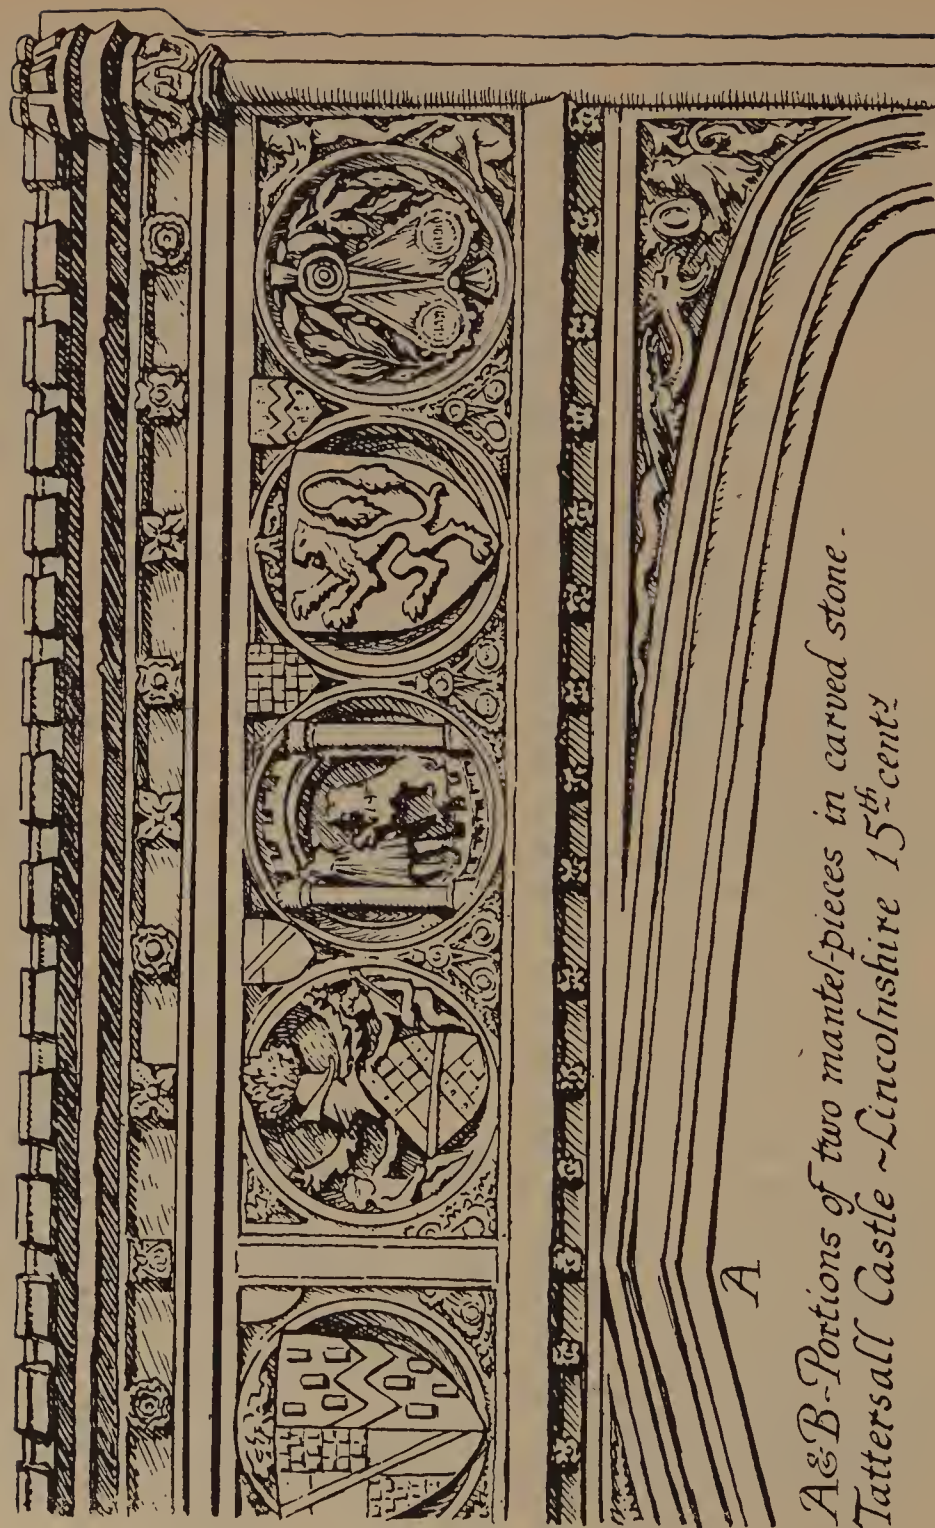 A
A & B - Portions of two mantel-pieces in carved stone -
Tattersall Castle ~ Lincolnshire 15th centy